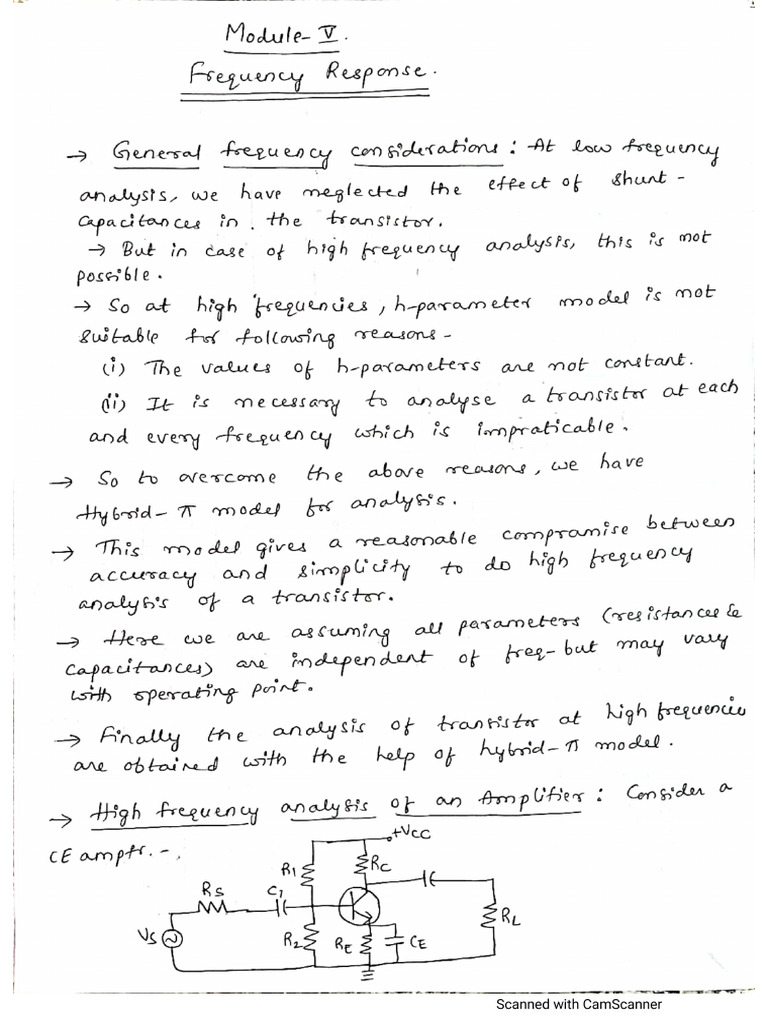 Module-V.
Frequency Response.
→ General frequency considerations: At low frequency
analysis, we have neglected the effect of shunt-
capacitances in. the transistor.
→ But in case of high frequency analysis, this is not
possible.
→ So at high frequencies, h-parameter model is not
suitable for following reasons-
(i) The values of h-parameters are not constant.
(ii) It is necessary to analyse a transistor at each
and every frequency which is impraticable.
→ So to overcome the above reasons, we have
Hybrid-π model for analysis.
→ This model gives a reasonable compramise between
accuracy and simplicity to do high frequency
analysis of a transistor.
→ Here we are assuming all parameters (resistances &
capacitances) are independent of freq- but may vary
with operating point.
→ Finally the analysis of transistor at high frequencies
are obtained with the help of hybrid-π model.
→ High frequency analysis of an Amplifier: Consider a
CE amptr.-
+VCC
R1
RC
RS
C1
RL
VS
R2
RE
CE
Scanned with CamScanner